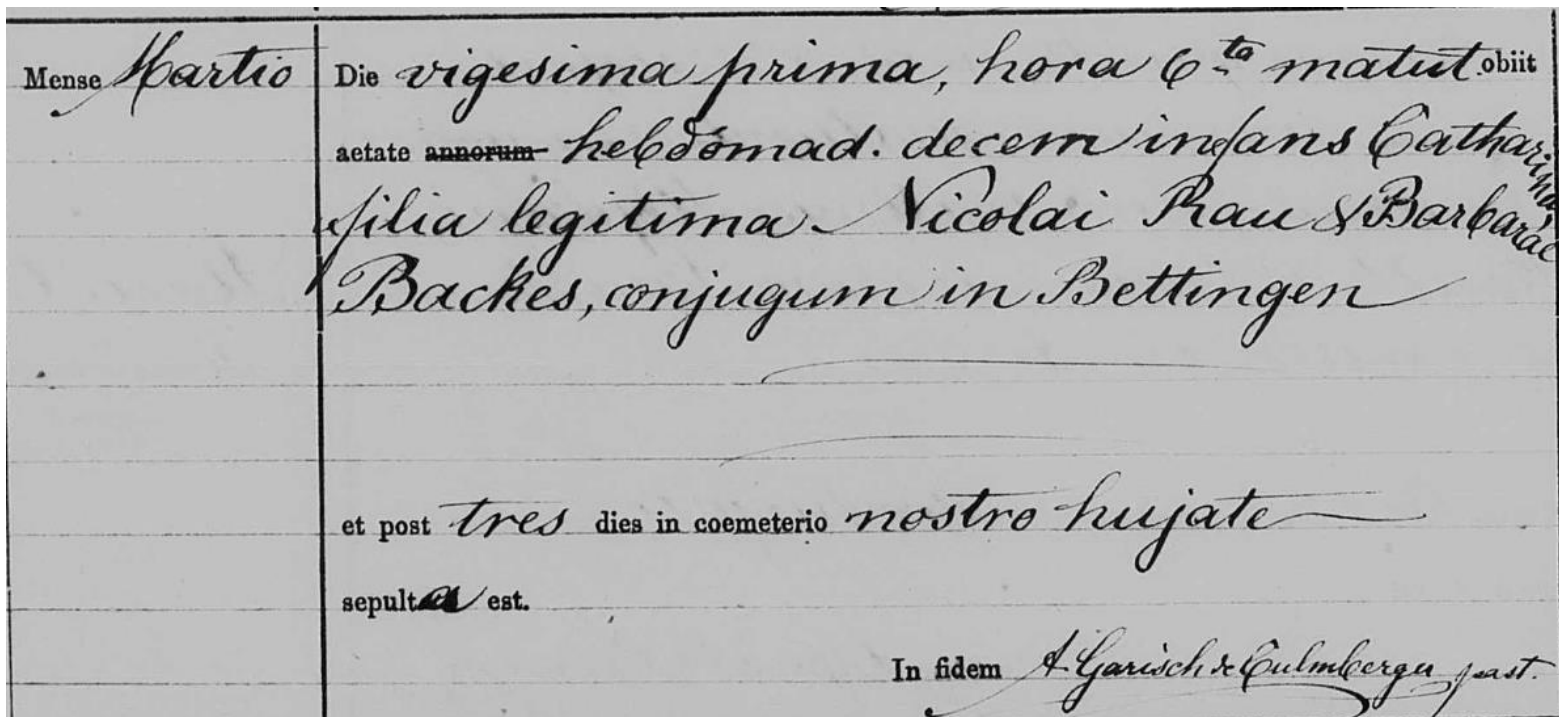 Mense Martio Die vigesima prima, hora 6ta matut. obiit
aetate annorum hebdomad. decem infans Catharina
filia legitima Nicolai Rau & Barbarae
Backes, conjugum in Bettingen
et post tres dies in coemeterio nostro hujate
sepulta est.
In fidem A Garisch de Culmberger past.